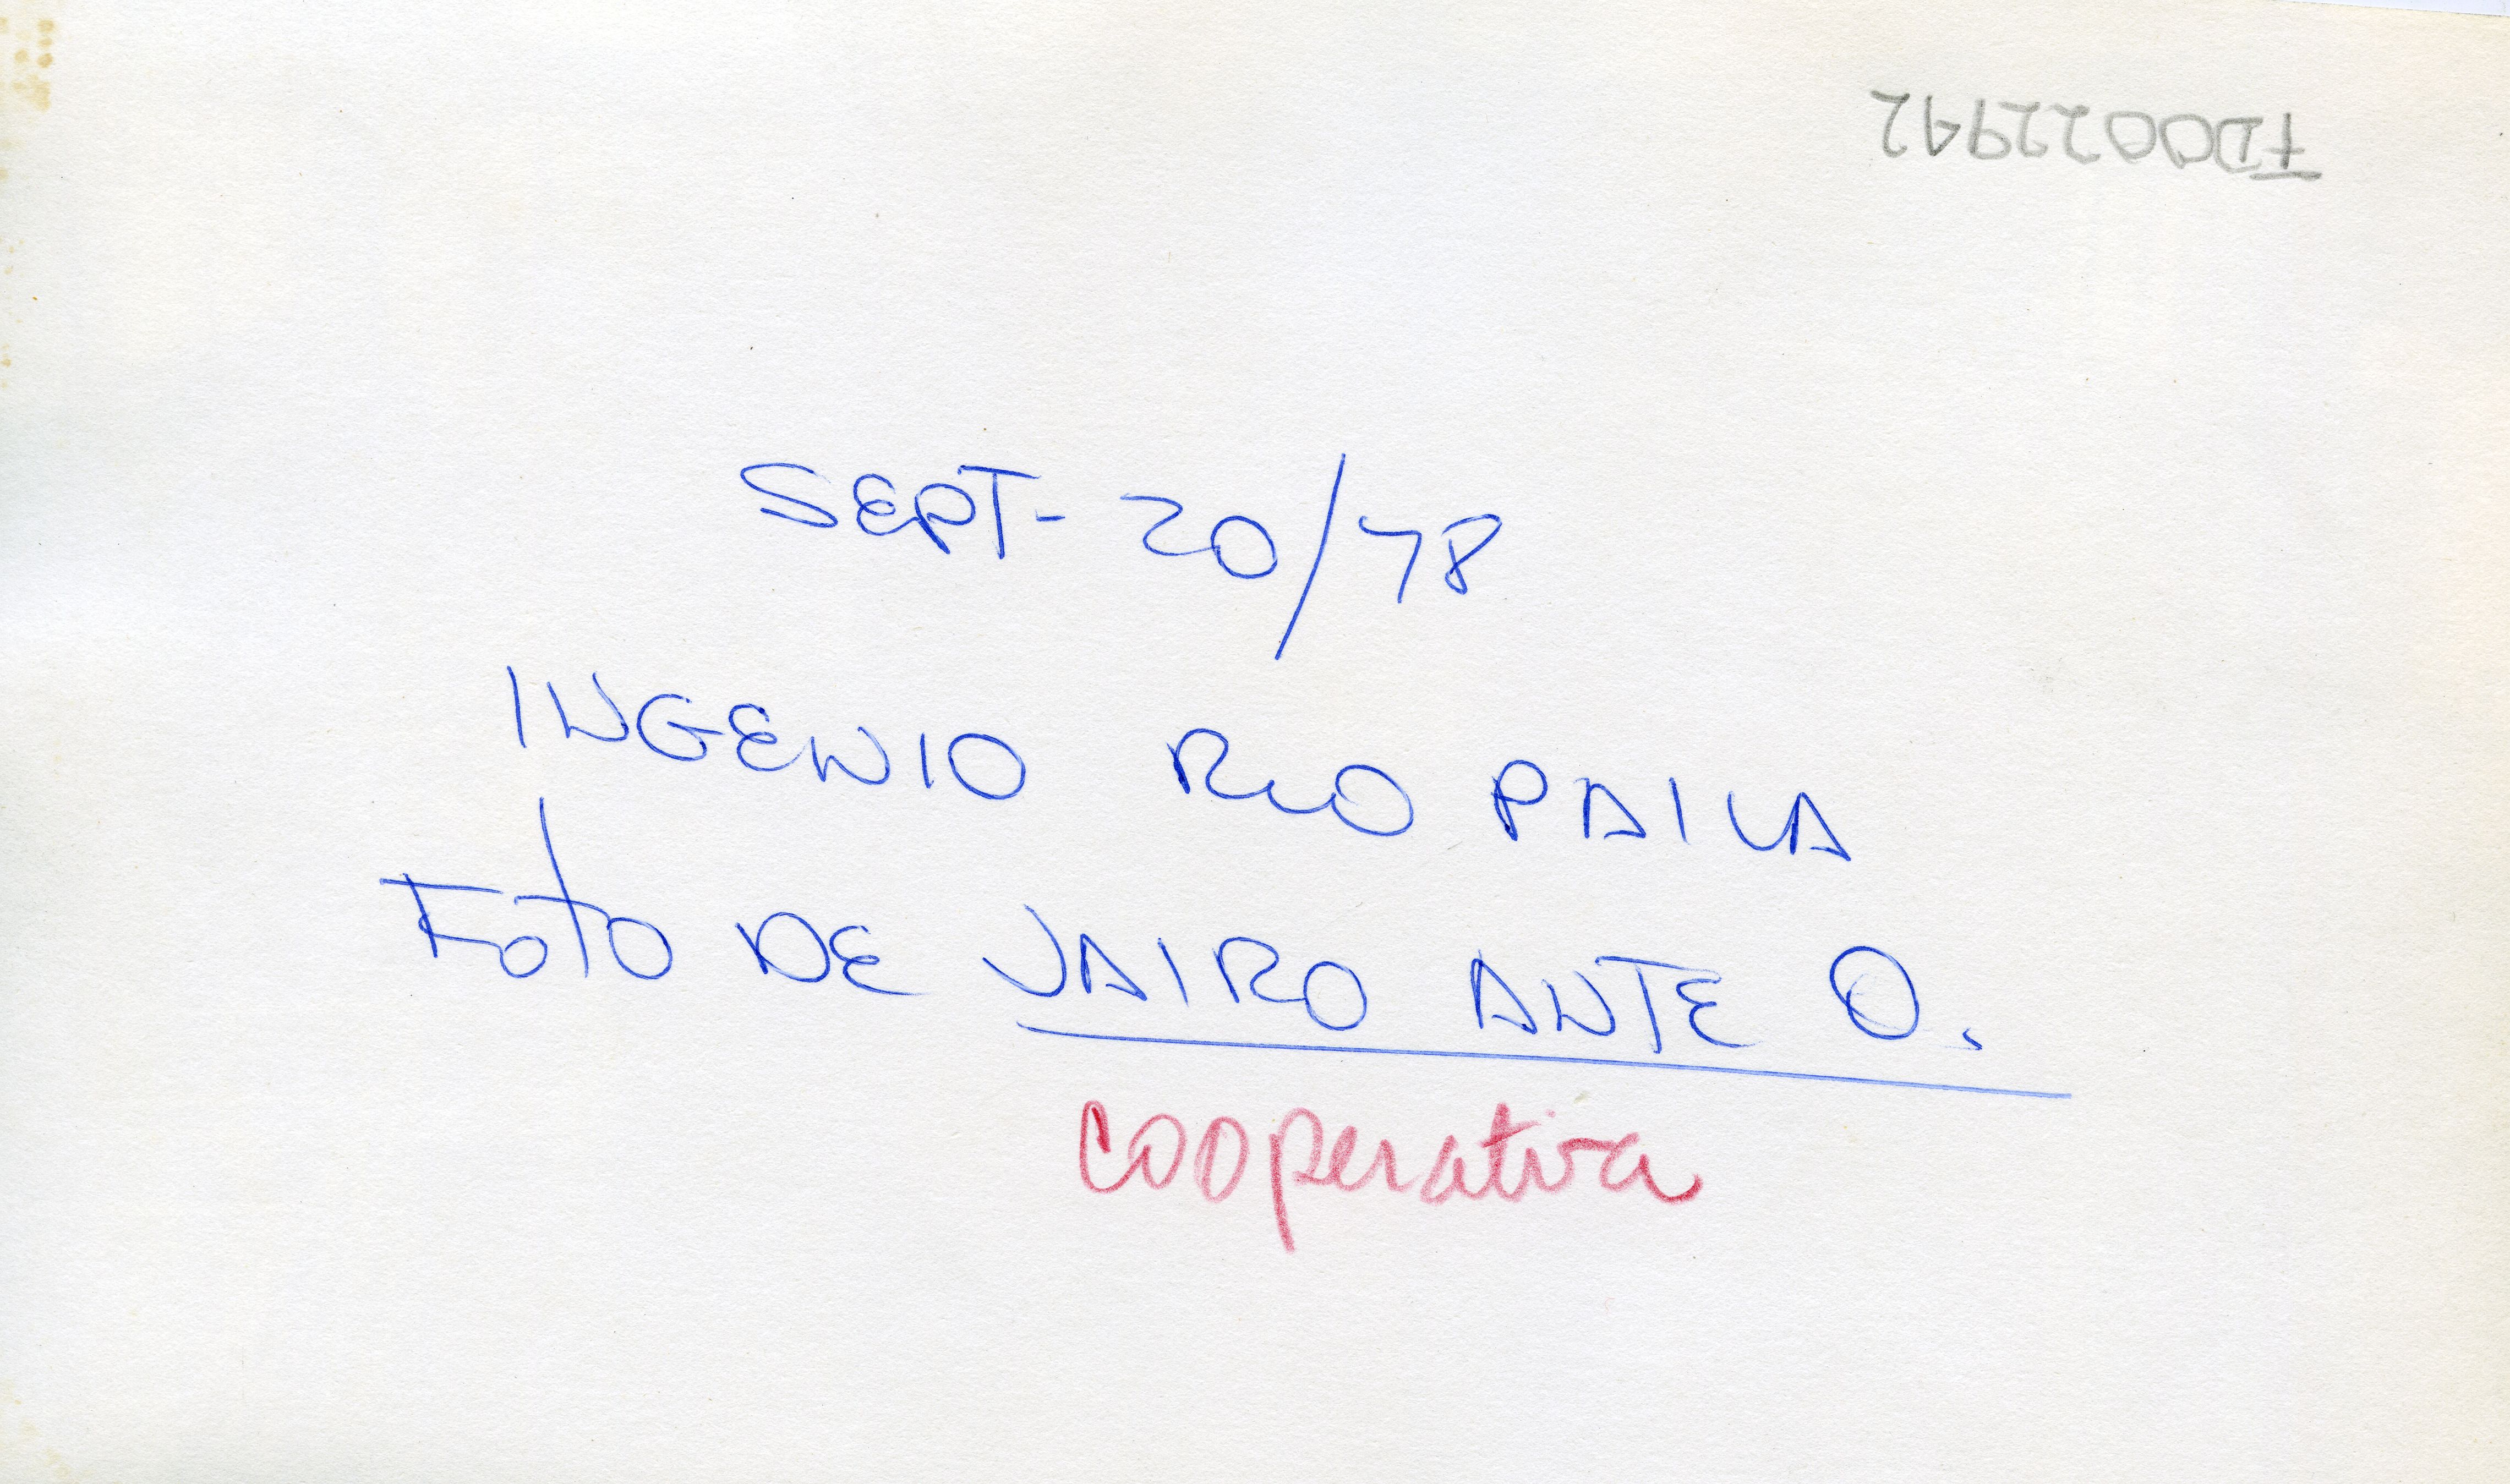 FD0022942
SEPT- 20/78
INGENIO RIO PAILA
FOTO DE JAIRO ANTE O.
cooperativa